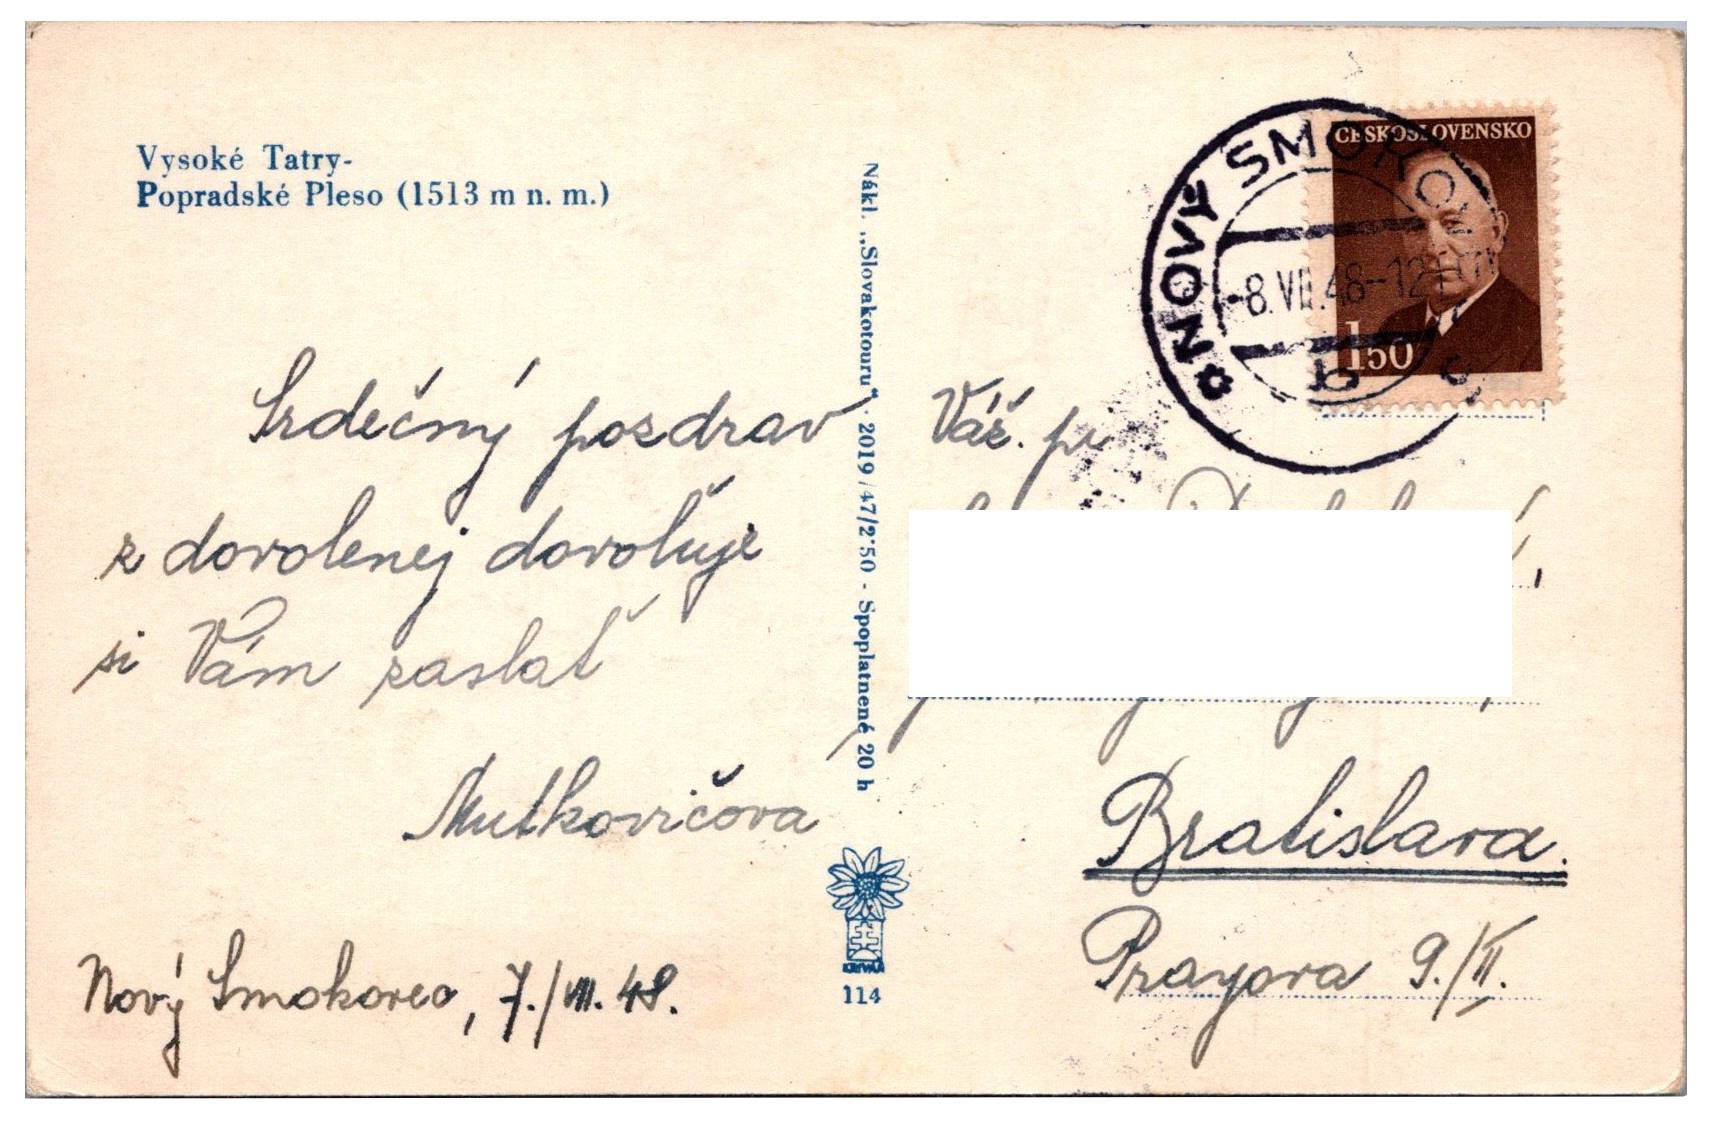 Vysoké Tatry-
Popradské Pleso (1513 m n. m.)
Srdečný pozdrav
z dovolenej dovoľuje
si Vám zaslať
Mutkovičova
Nový Smokovec, 7./VII. 48.
Nákl. „Slovakotouru“ · 2019/47/2·50 - Spoplatnené 20 h
114
ČESKOSLOVENSKO
150
NOVÝ SMOKOV
-8.VII.48--12
b
Váž. pí
Bratislava.
Prayova 9./II.